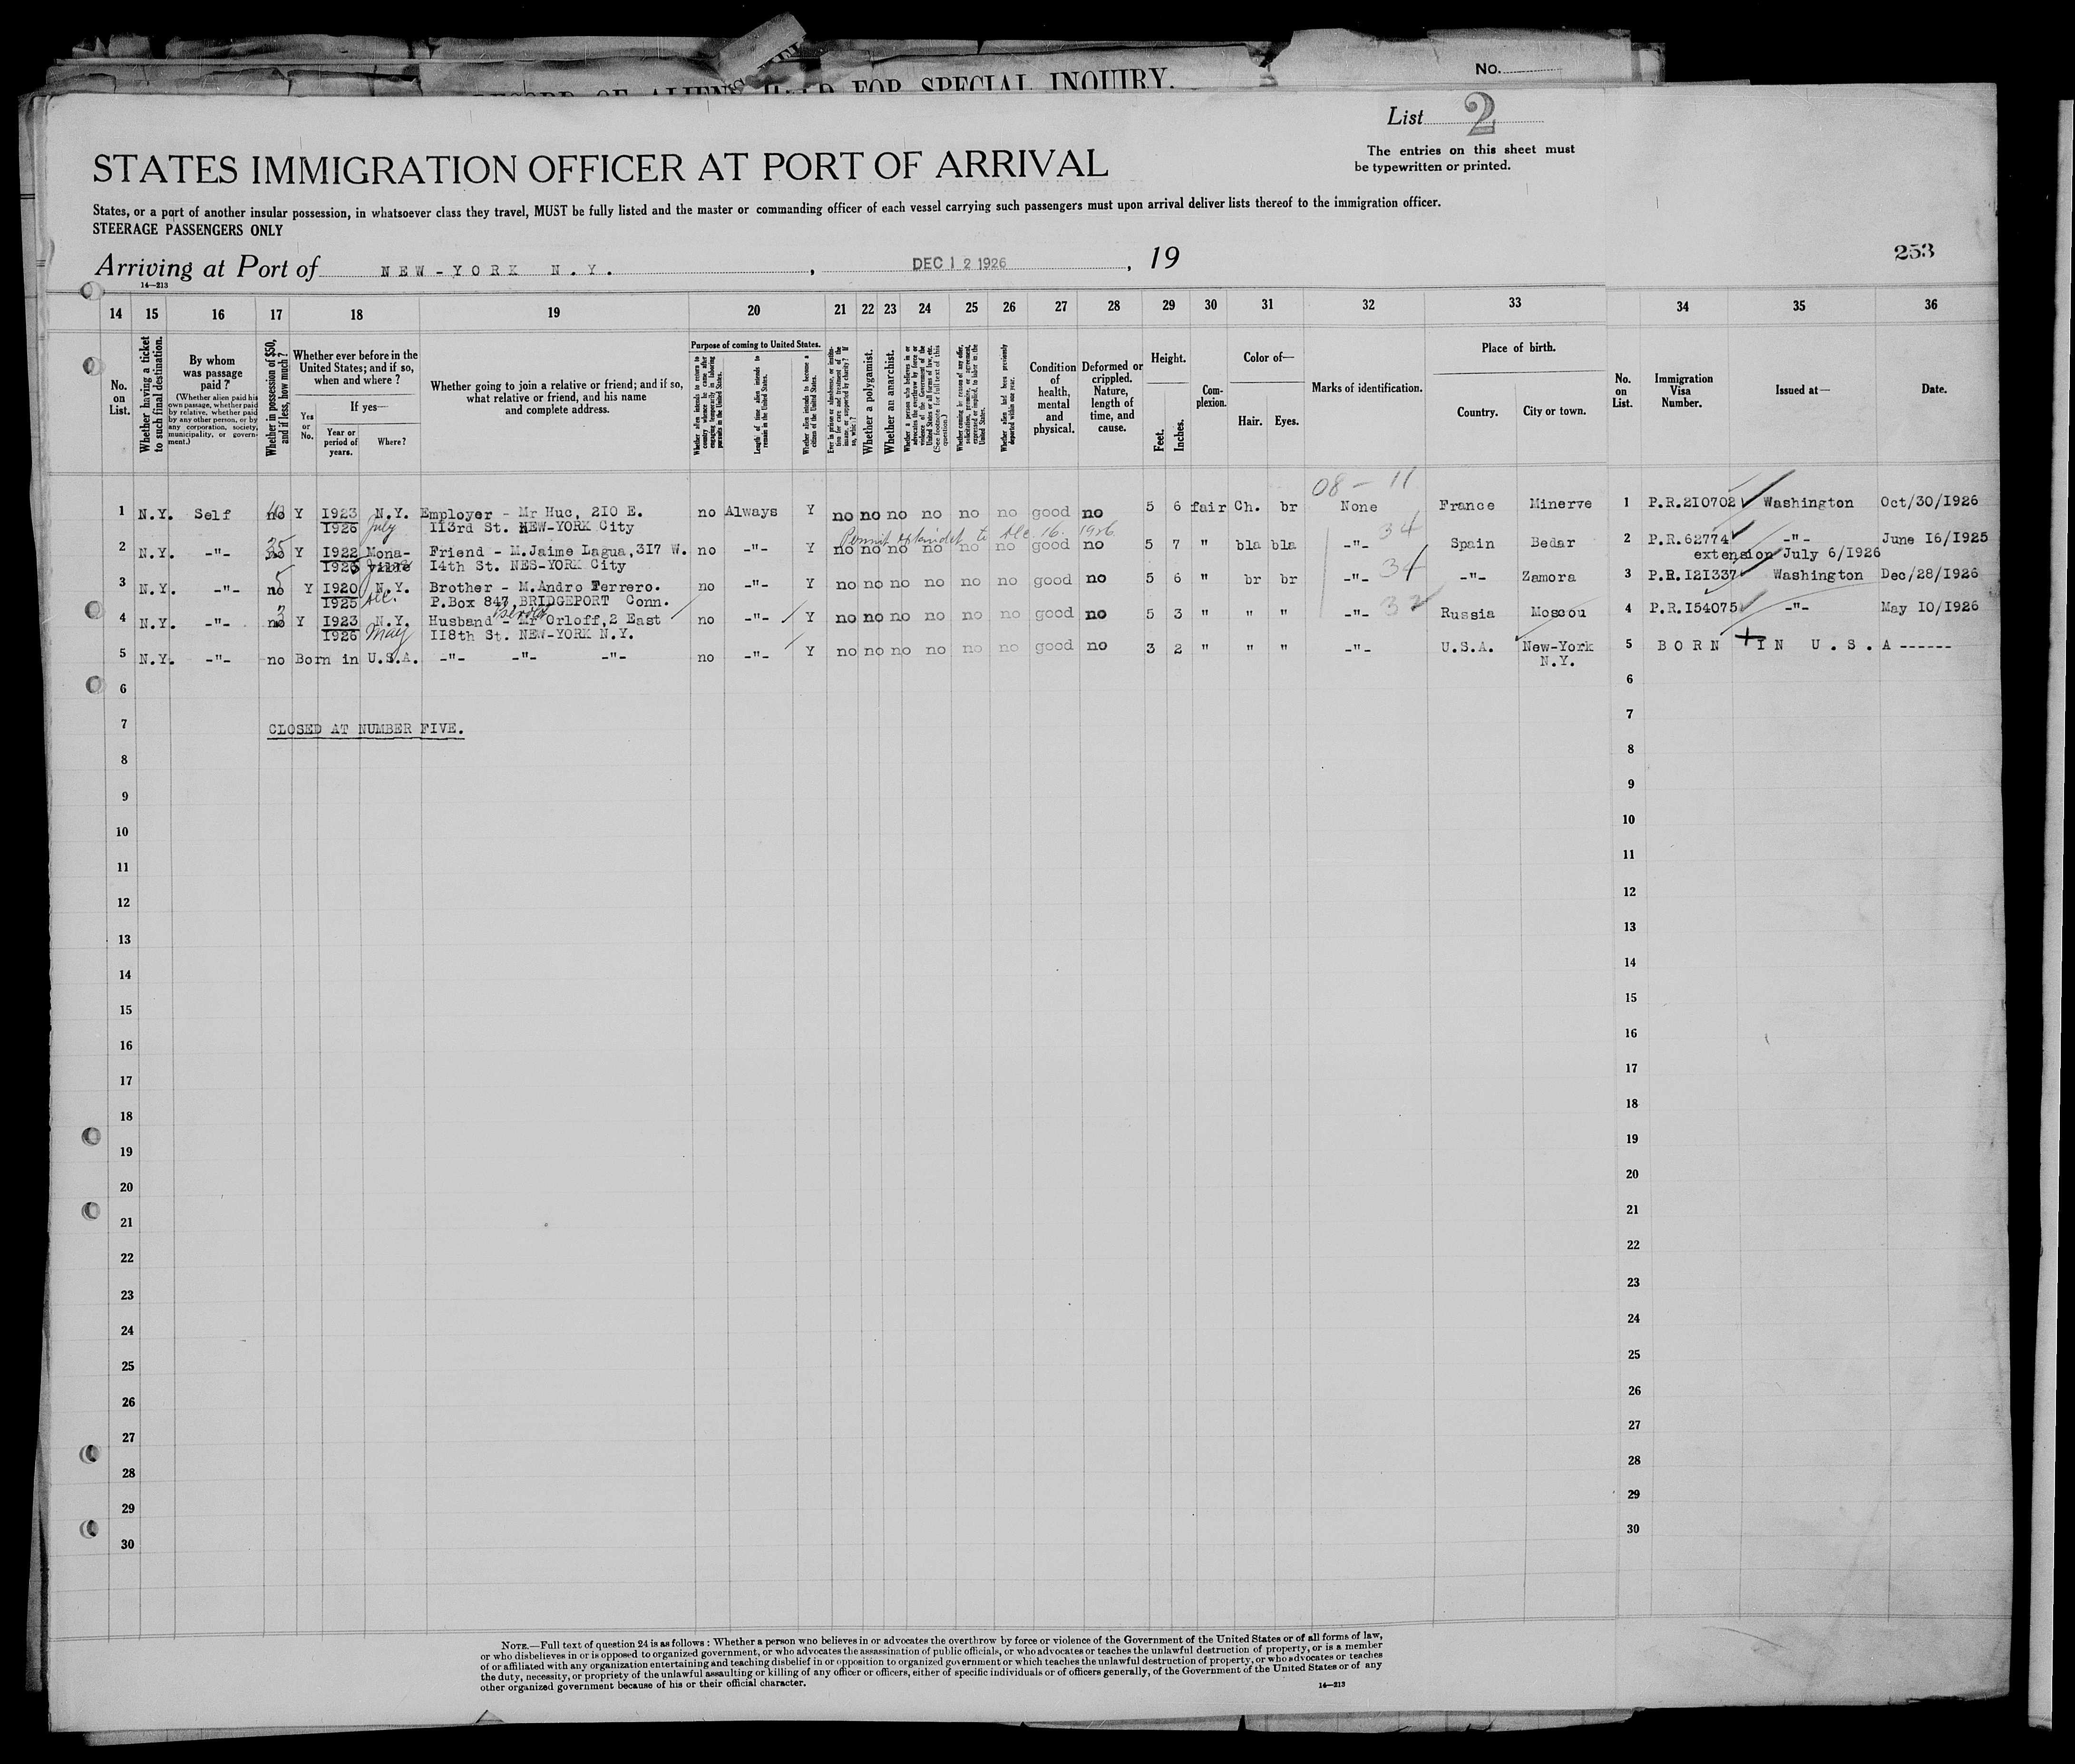 RECORD OF ALIENS HELD FOR SPECIAL INQUIRY.
No.
List 2
The entries on this sheet must
be typewritten or printed.
STATES IMMIGRATION OFFICER AT PORT OF ARRIVAL
States, or a port of another insular possession, in whatsoever class they travel, MUST be fully listed and the master or commanding officer of each vessel carrying such passengers must upon arrival deliver lists thereof to the immigration officer.
STEERAGE PASSENGERS ONLY
Arriving at Port of NEW-YORK N.Y. , DEC 12 1926 , 19
253
14—213
14 15 16 17 18 19 20 21 22 23 24 25 26 27 28 29 30 31 32 33 34 35 36
No. on List.
Whether having a ticket to such final destination.
By whom was passage paid?
(Whether alien paid his own passage, whether paid by relative, whether paid by any other person, or by any corporation, society, municipality, or government.)
Whether in possession of $50, and if less, how much?
Whether ever before in the United States; and if so, when and where?
Yes or No.
If yes—
Year or period of years.
Where?
Whether going to join a relative or friend; and if so, what relative or friend, and his name and complete address.
Purpose of coming to United States.
Whether alien intends to return to country whence he came after engaging temporarily in laboring pursuits in the United States.
Length of time alien intends to remain in the United States.
Whether alien intends to become a citizen of the United States.
Ever in prison or almshouse, or institution for care and treatment of the insane, or supported by charity? If so, which?
Whether a polygamist.
Whether an anarchist.
Whether a person who believes in or advocates the overthrow by force or violence of the Government of the United States or all forms of law, etc. (See footnote for full text of this question.)
Whether coming by reason of any offer, solicitation, promise, or agreement, expressed or implied, to labor in the United States.
Whether alien had been previously deported within one year.
Condition of health, mental and physical.
Deformed or crippled. Nature, length of time, and cause.
Height.
Feet.
Inches.
Complexion.
Color of—
Hair.
Eyes.
Marks of identification.
Place of birth.
Country.
City or town.
No. on List.
Immigration Visa Number.
Issued at—
Date.
08 - 11
1 N.Y. Self no Y 1923 N.Y. Employer - Mr Huc, 210 E. no Always Y no no no no no no good no 5 6 fair Ch. br None France Minerve 1 P.R.210702 Washington Oct/30/1926
1926 July 113rd St. NEW-YORK City
Permit extended to Dec. 16. 1926
34
2 N.Y. -"- 35 no Y 1922 Mona- Friend - M.Jaime Lagua,317 W. no -"- Y no no no no no no good no 5 7 " bla bla -"- Spain Bedar 2 P.R.62774 -"- June 16/1925
14th St. NES-YORK City
extension July 6/1926
34
3 N.Y. -"- 5 no Y 1920 N.Y. Brother - M.Andro Ferrero. no -"- Y no no no no no no good no 5 6 " br br -"- -"- Zamora 3 P.R.121337 Washington Dec/28/1926
1925 P.Box 847, BRIDGEPORT Conn.
32
4 N.Y. -"- 3 no Y 1923 N.Y. Husband - Mr Orloff,2 East no -"- Y no no no no no no good no 5 3 " " " -"- Russia Moscou 4 P.R.154075 -"- May 10/1926
1926 May 118th St. NEW-YORK N.Y.
5 N.Y. -"- no Born in U.S.A. -"- -"- -"- no -"- Y no no no no no no good no 3 2 " " " -"- U.S.A. New-York 5 BORN IN U.S.A------
N.Y.
6 6
7 CLOSED AT NUMBER FIVE. 7
8 8
9 9
10 10
11 11
12 12
13 13
14 14
15 15
16 16
17 17
18 18
19 19
20 20
21 21
22 22
23 23
24 24
25 25
26 26
27 27
28 28
29 29
30 30
NOTE.—Full text of question 24 is as follows: Whether a person who believes in or advocates the overthrow by force or violence of the Government of the United States or of all forms of law,
or who disbelieves in or is opposed to organized government, or who advocates the assassination of public officials, or who advocates or teaches the unlawful destruction of property, or is a member
of or affiliated with any organization entertaining and teaching disbelief in or opposition to organized government or which teaches the unlawful destruction of property, or who advocates or teaches
the duty, necessity, or propriety of the unlawful assaulting or killing of any officer or officers, either of specific individuals or of officers generally, of the Government of the United States or of any
other organized government because of his or their official character.
14—213